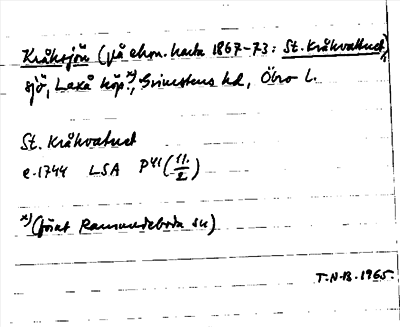 Kråksjön (på ekon. karta 1867-73: St. Kråkvattnet),
sjö, Laxå köp.ˣ⁾, Grimstens hd, Öbro l.
St. Kråkvatnet
c. 1744 LSA P41 (11/2)
x) (förut Ramundeboda sn)
T.N-B. 1965.